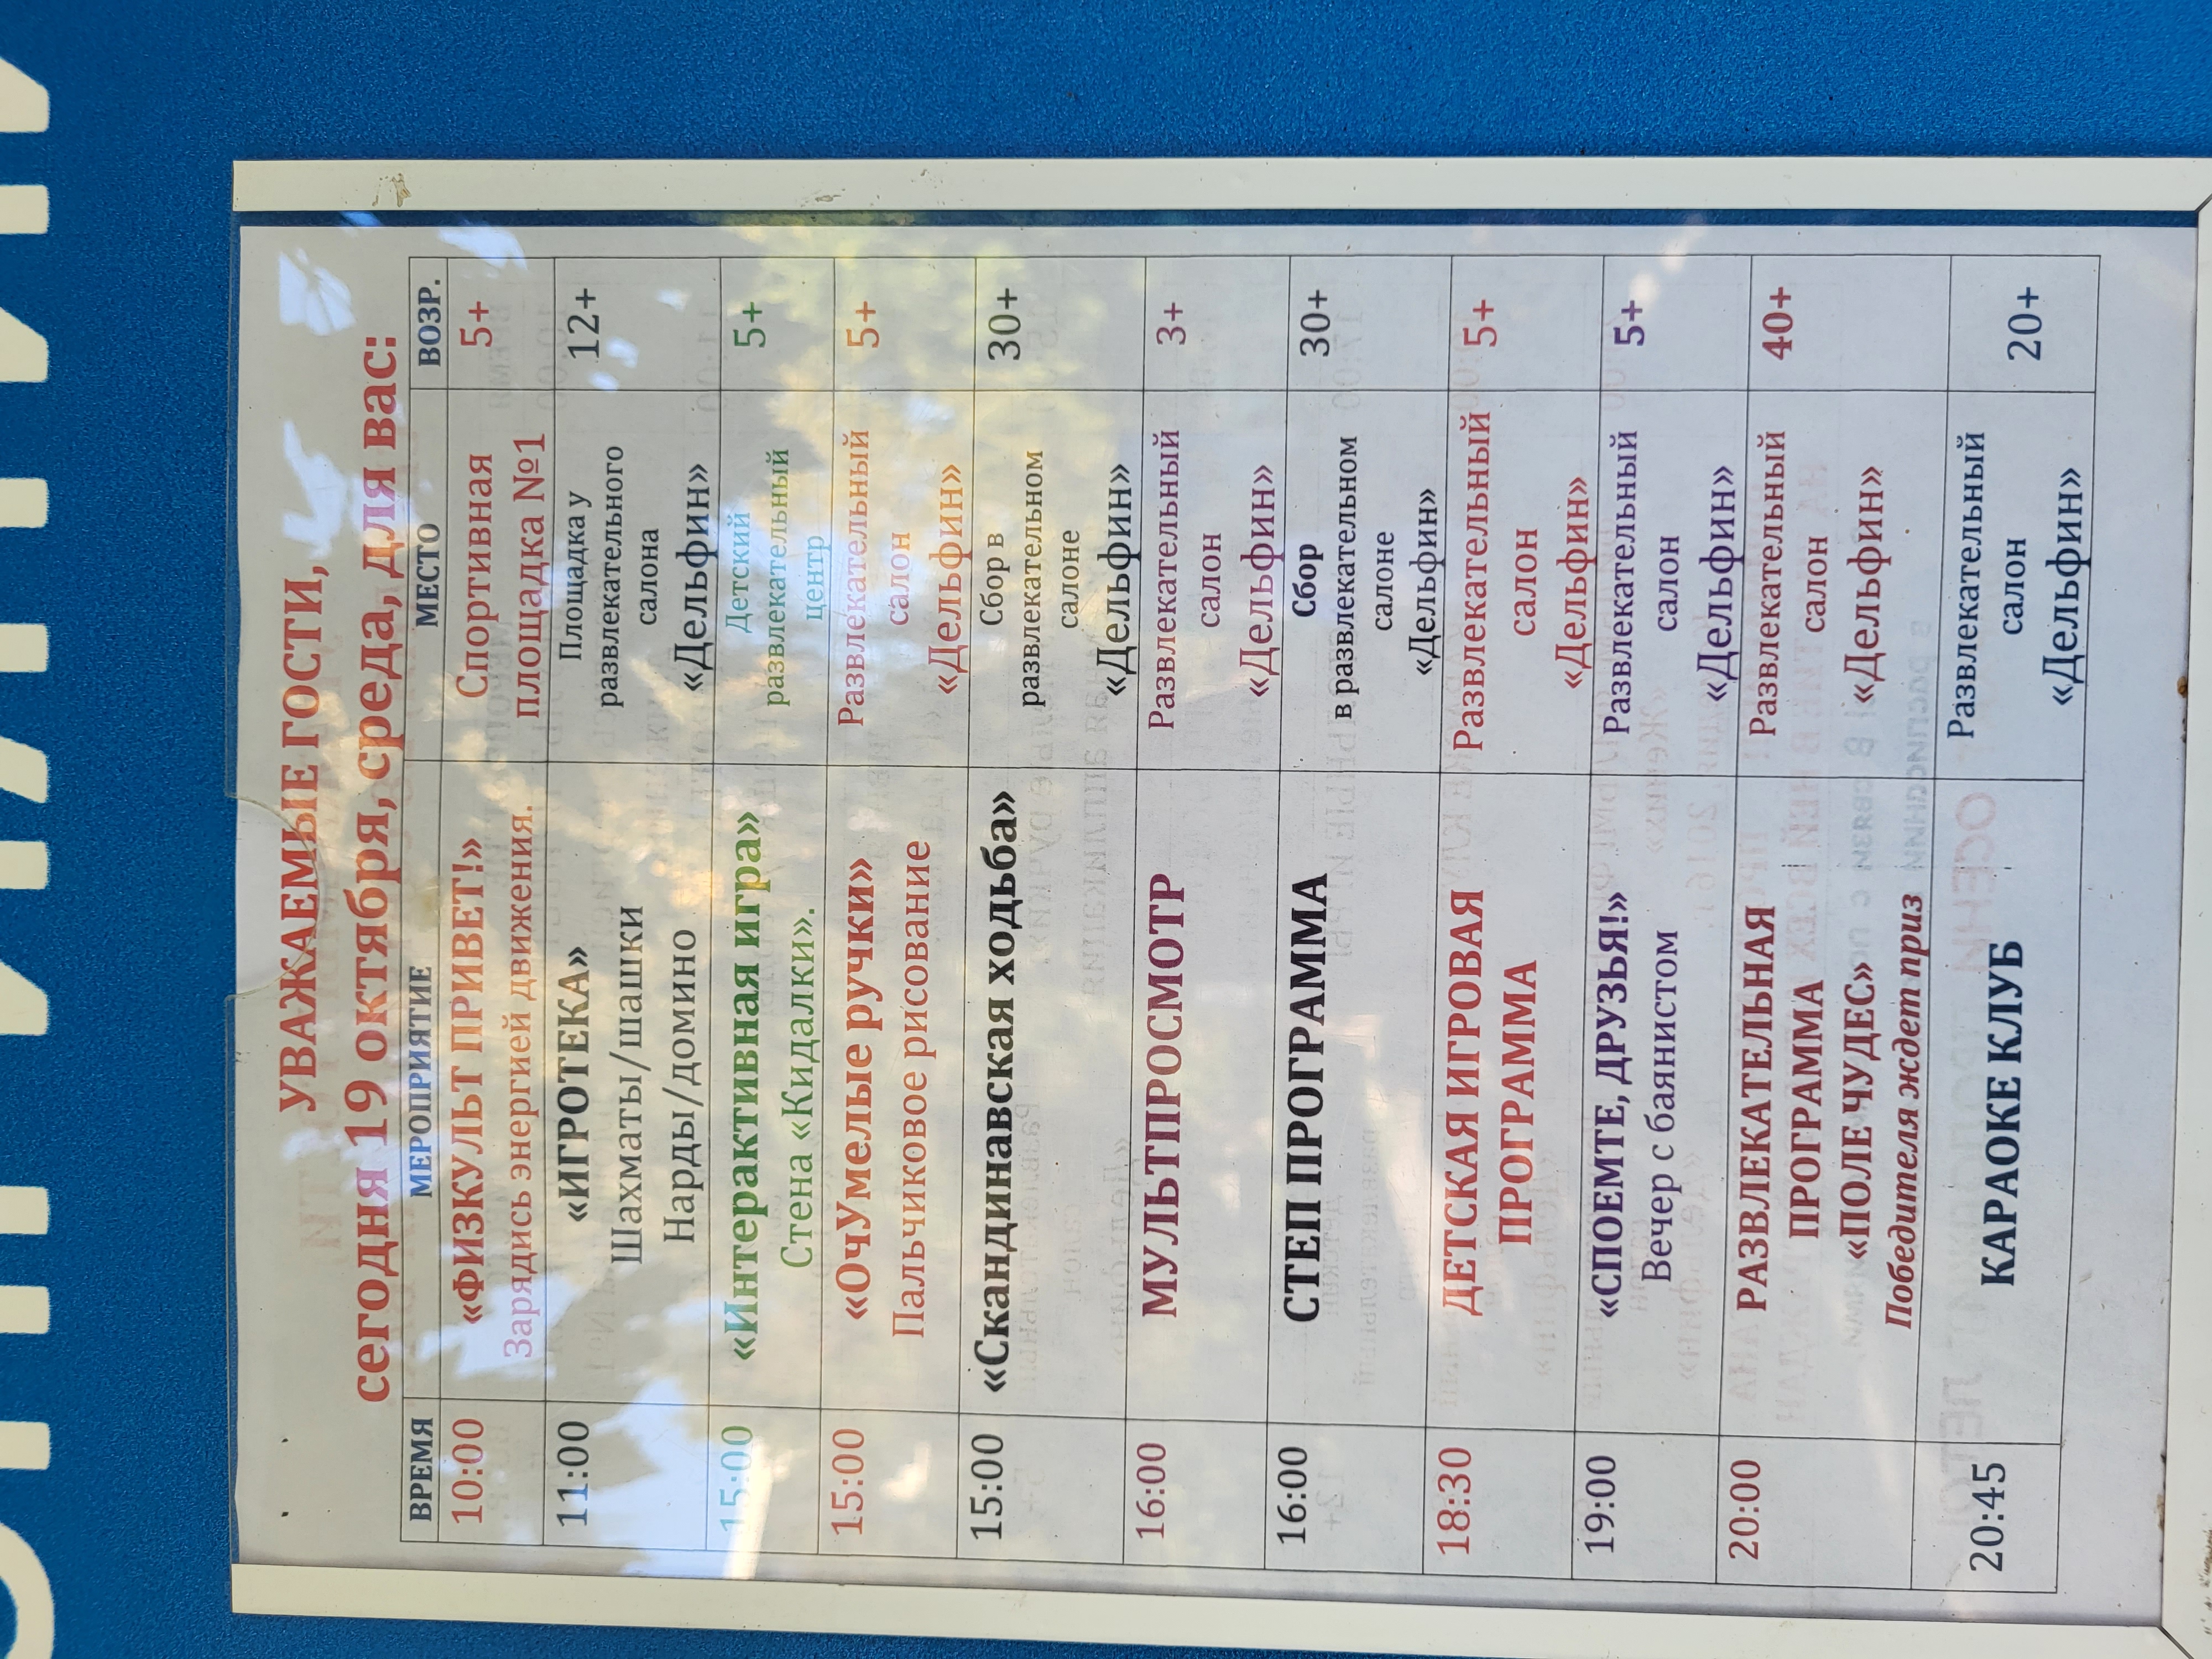 УВАЖАЕМЫЕ ГОСТИ,
сегодня 19 октября, среда, для вас:
ВРЕМЯ МЕРОПРИЯТИЕ МЕСТО ВОЗР.
10:00 «ФИЗКУЛЬТ ПРИВЕТ!» Спортивная 5+
Зарядись энергией движения. площадка №1
11:00 «ИГРОТЕКА» Площадка у 12+
Шахматы/шашки развлекательного
Нарды/домино салона
«Дельфин»
15:00 «Интерактивная игра» Детский 5+
Стена «Кидалки». развлекательный
центр
15:00 «ОчУмелые ручки» Развлекательный 5+
Пальчиковое рисование салон
«Дельфин»
15:00 «Скандинавская ходьба» Сбор в 30+
развлекательном
салоне
«Дельфин»
16:00 МУЛЬТПРОСМОТР Развлекательный 3+
салон
«Дельфин»
16:00 СТЕП ПРОГРАММА Сбор 30+
в развлекательном
салоне
«Дельфин»
18:30 ДЕТСКАЯ ИГРОВАЯ Развлекательный 5+
ПРОГРАММА салон
«Дельфин»
19:00 «СПОЕМТЕ, ДРУЗЬЯ!» Развлекательный 5+
Вечер с баянистом салон
«Дельфин»
20:00 РАЗВЛЕКАТЕЛЬНАЯ Развлекательный 40+
ПРОГРАММА салон
«ПОЛЕ ЧУДЕС» «Дельфин»
Победителя ждет приз
20:45 КАРАОКЕ КЛУБ Развлекательный 20+
салон
«Дельфин»